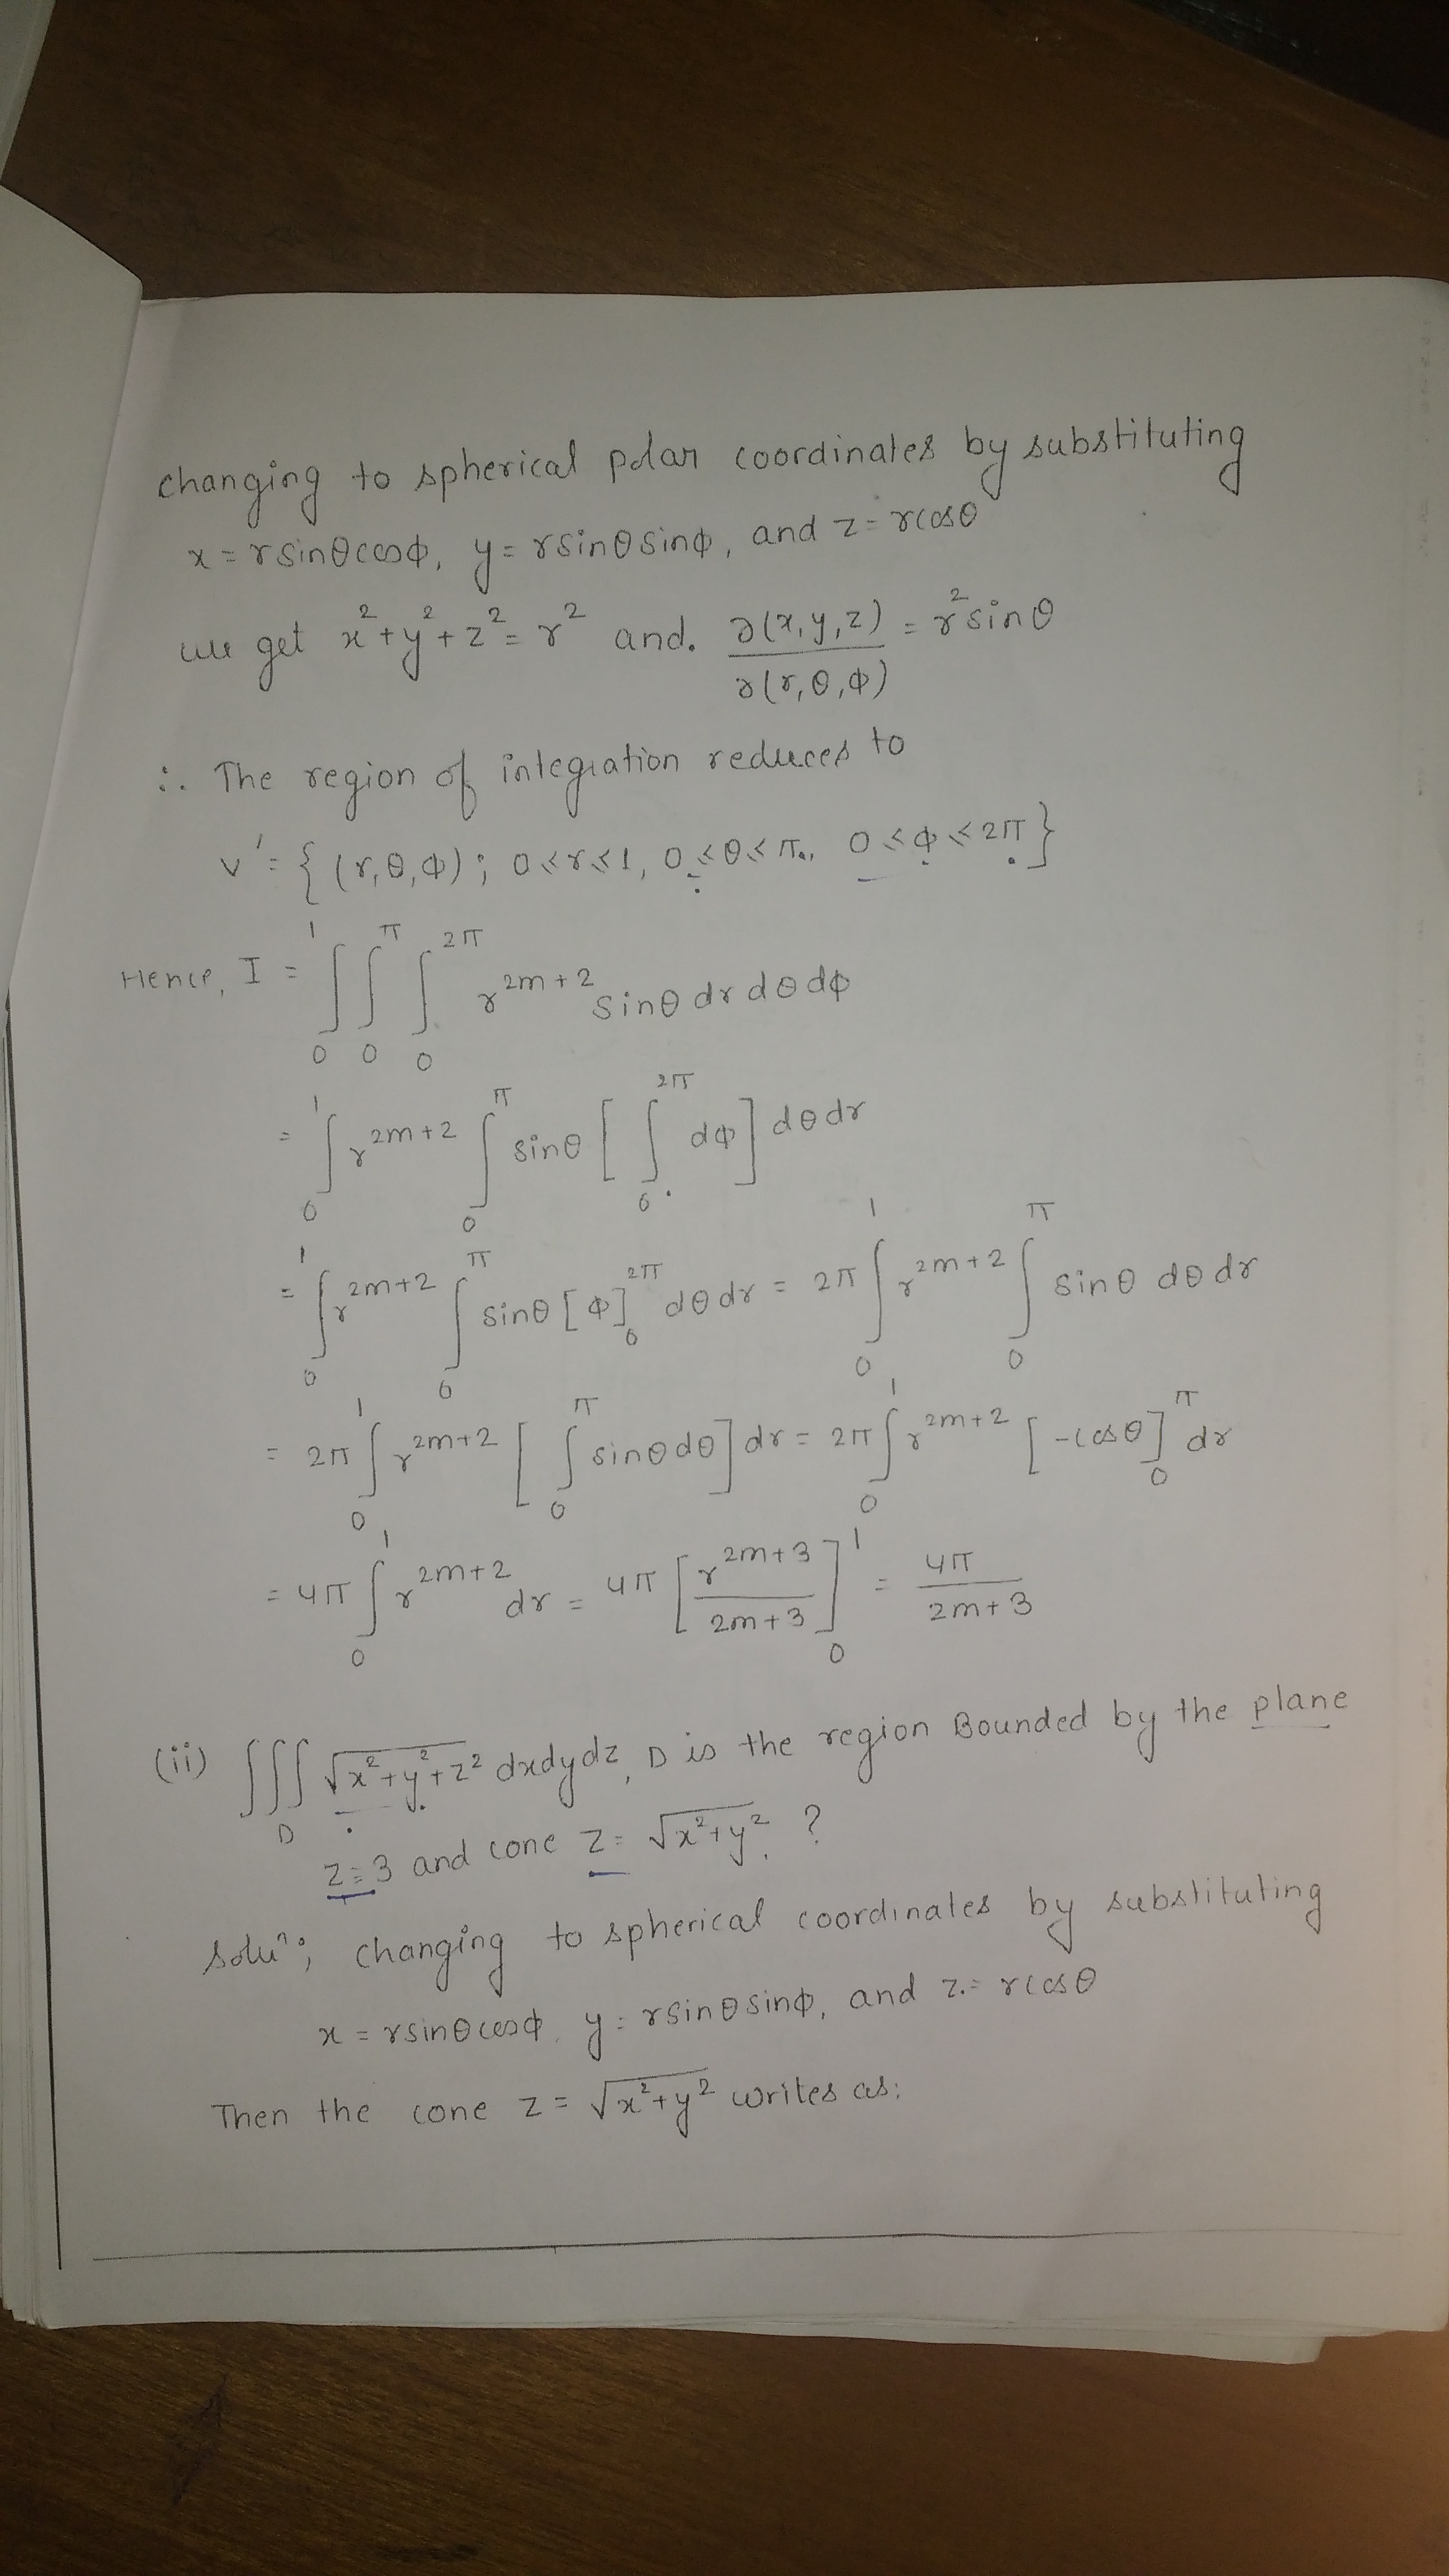 changing to spherical polar coordinates by substituting
x = r sinθ cosϕ, y = r sinθ sinϕ, and z = r cosθ
we get x² + y² + z² = r² and. ∂(x, y, z) / ∂(r, θ, ϕ) = r² sinθ
∴ The region of integration reduces to
V' = { (r, θ, ϕ) ; 0 ≤ r ≤ 1, 0 ≤ θ ≤ π, 0 ≤ ϕ ≤ 2π }
Hence, I = ∫₀¹ ∫₀^π ∫₀^2π r^(2m+2) sinθ dr dθ dϕ
= ∫₀¹ r^(2m+2) ∫₀^π sinθ [ ∫₀^2π dϕ ] dθ dr
= ∫₀¹ r^(2m+2) ∫₀^π sinθ [ϕ]₀^2π dθ dr = 2π ∫₀¹ r^(2m+2) ∫₀^π sinθ dθ dr
= 2π ∫₀¹ r^(2m+2) [ ∫₀^π sinθ dθ ] dr = 2π ∫₀¹ r^(2m+2) [ -cosθ ]₀^π dr
= 4π ∫₀¹ r^(2m+2) dr = 4π [ r^(2m+3) / (2m+3) ]₀¹ = 4π / (2m+3)
(ii) ∫∫∫_D √(x² + y² + z²) dx dy dz, D is the region Bounded by the plane
z = 3 and cone z = √(x² + y²) ?
Soluⁿ; changing to spherical coordinates by substituting
x = r sinθ cosϕ, y = r sinθ sinϕ, and z = r cosθ
Then the cone z = √(x² + y²) writes as: